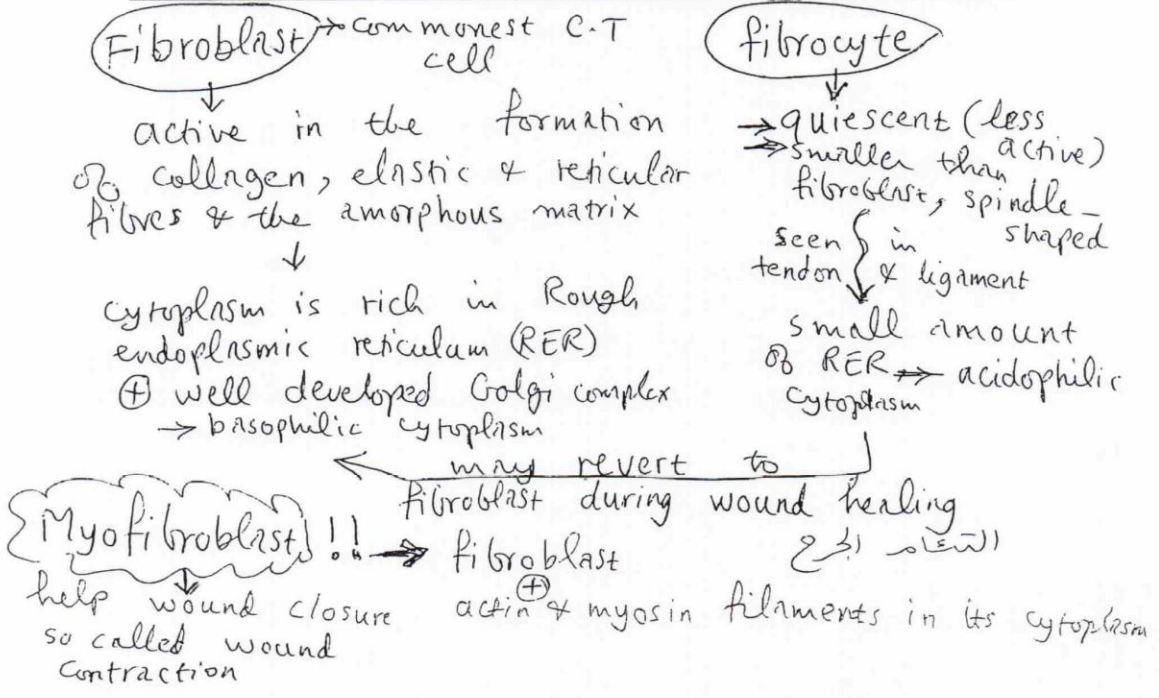 Fibroblast → commonest C.T
cell
↓
active in the formation
of collagen, elastic & reticular
fibres & the amorphous matrix
↓
cytoplasm is rich in Rough
endoplasmic reticulum (RER)
⊕ well developed Golgi complex
→ basophilic cytoplasm
fibrocyte
↓
→ quiescent (less
active)
→ smaller than
fibroblast, spindle-
shaped
seen in
tendon & ligament
↓
small amount
of RER → acidophilic
cytoplasm
may revert to
fibroblast during wound healing
التئام الجرح
Myofibroblast !! → fibroblast
⊕
actin & myosin filaments in its cytoplasm
↓
help wound closure
so called wound
contraction